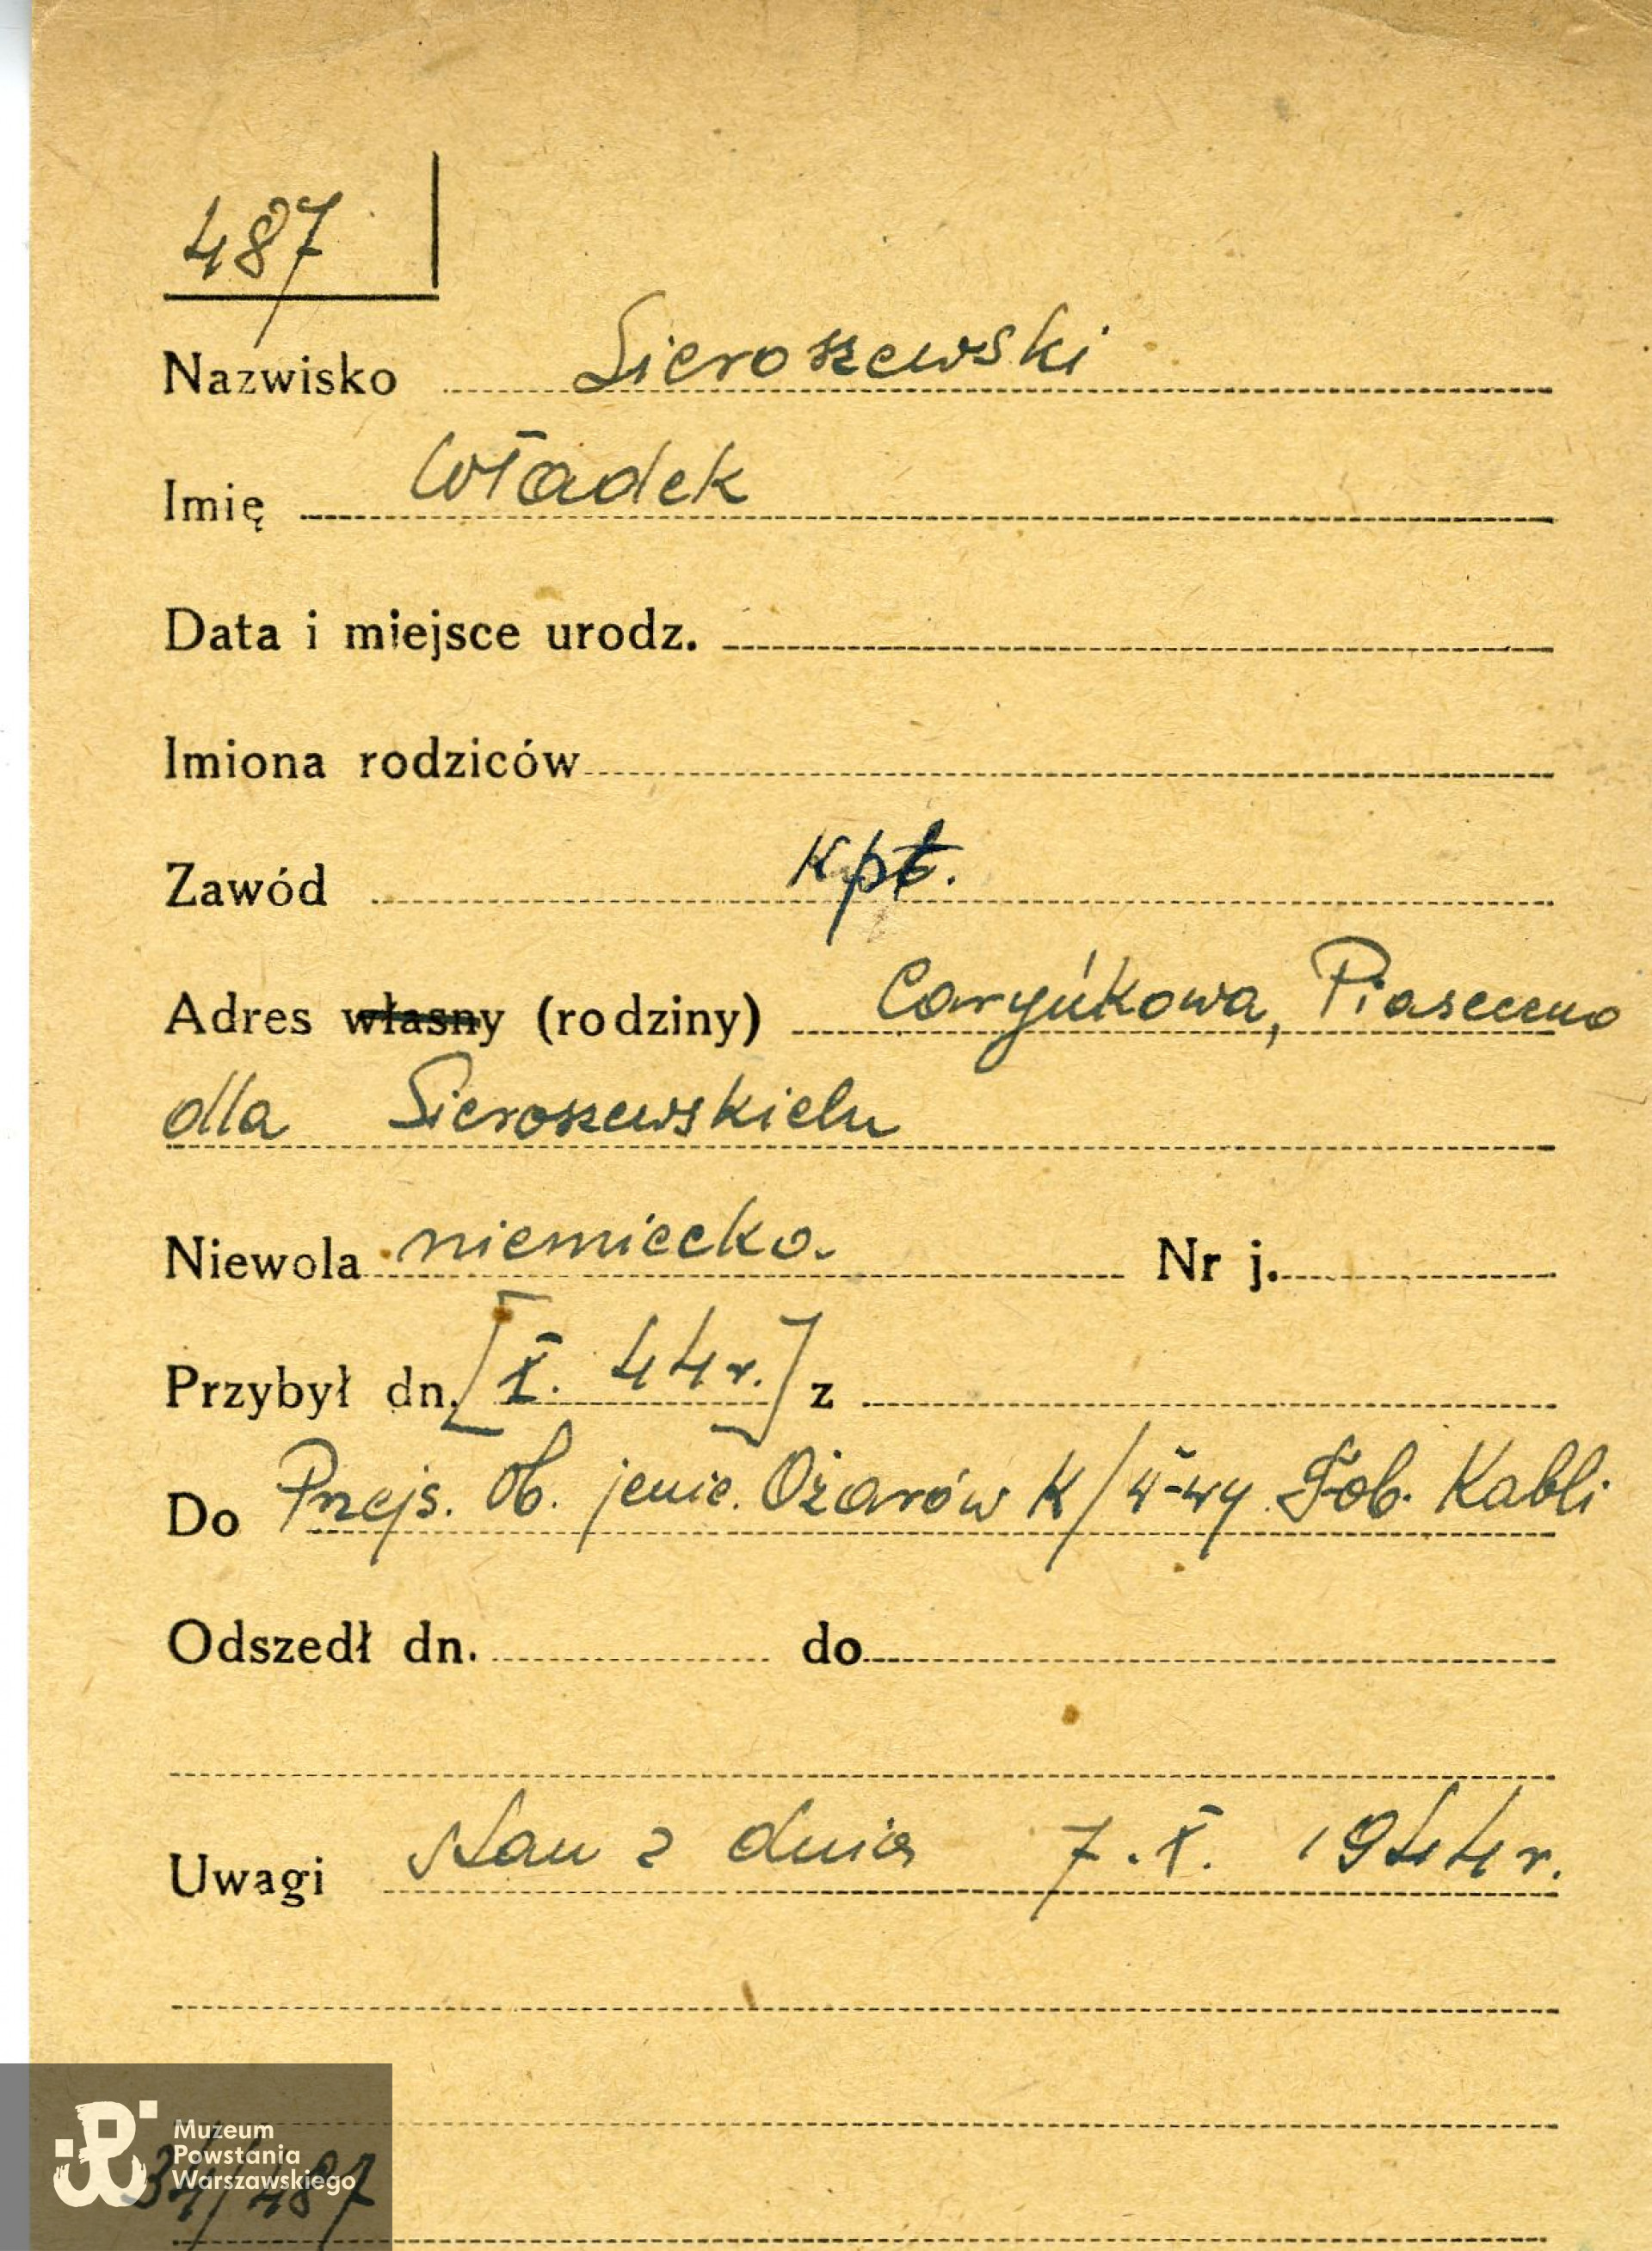 487
Nazwisko Sieroszewski
Imię Władek
Data i miejsce urodz.
Imiona rodziców
Zawód kpt.
Adres własny (rodziny) Piaseczno
dla Sieroszewskich
Niewola niemiecka. Nr j.
Przybył dn. [X. 44 r.] z
Do Przejs. Ob. jenic. Ożarów K/W-wy Fab. Kabli
Odszedł dn. do
Uwagi stan z dnia 7. X. 1944 r.
Muzeum
Powstania
Warszawskiego
34/487